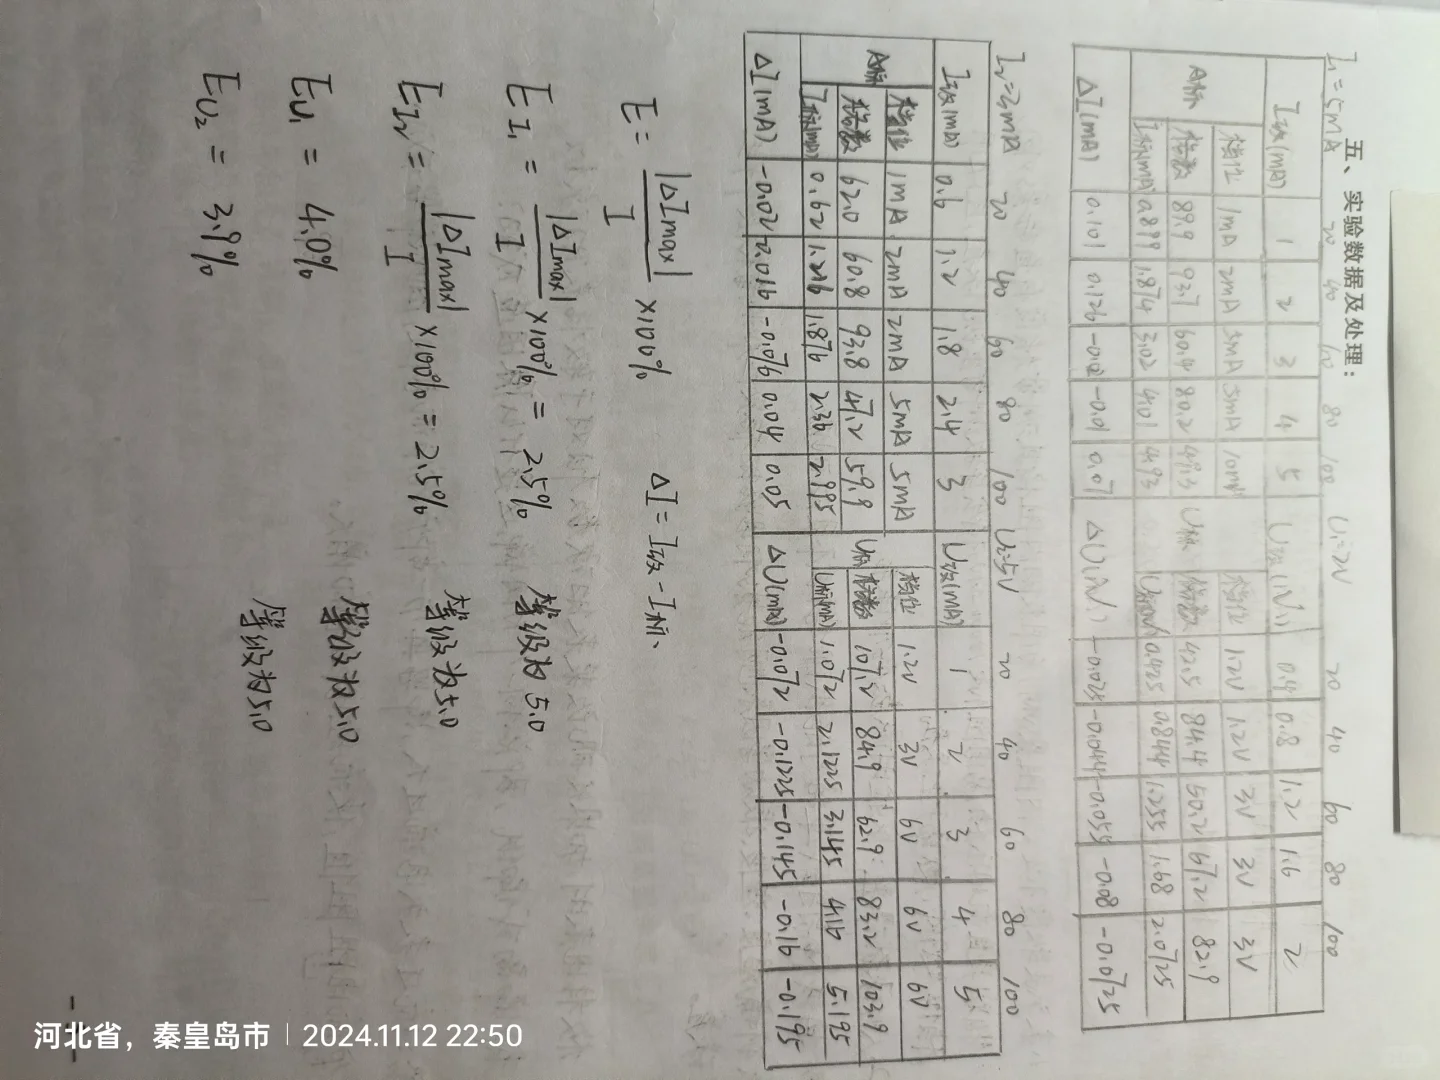 五、实验数据及处理:
I₁=5mA 20 40 60 80 100 U₁=2V 20 40 60 80 100
I改(mA) 1 2 3 4 5 U改(V) 0.4 0.8 1.2 1.6 2
A标 档位 1mA 2mA 5mA 5mA 10mA U标 档位 1.2V 1.2V 3V 3V 3V
格数 89.9 93.7 60.4 80.2 49.3 格数 42.5 84.4 50.2 67.2 82.9
I标(mA) 0.899 1.874 3.02 4.01 4.93 0.425 0.844 1.255 1.68 2.0725
ΔI(mA) 0.101 0.126 -0.02 -0.01 0.07 ΔU(V) -0.025 -0.044 -0.055 -0.08 -0.0725
I₂=3mA 20 40 60 80 100 U₂=5V 20 40 60 80 100
I改(mA) 0.6 1.2 1.8 2.4 3 U改(mA) 1 2 3 4 5
A标 档位 1mA 2mA 2mA 5mA 5mA U标 档位 1.2V 3V 6V 6V 6V
格数 62.0 60.8 93.8 47.2 59.9 格数 107.2 84.9 62.9 83.2 103.9
I标(mA) 0.62 1.216 1.876 2.36 2.995 U标(mA) 1.072 2.1225 3.145 4.16 5.195
ΔI(mA) -0.02 -0.016 -0.076 0.04 0.05 ΔU(mA) -0.072 -0.1225 -0.145 -0.16 -0.195
E = |ΔImax| / I ×100% ΔI = I改 - I标、
E I₁ = |ΔImax| / I ×100% = 2.5% 等级为 5.0
E I₂ = |ΔImax| / I ×100% = 2.5% 等级为5.0
E U₁ = 4.0% 等级为5.0
E U₂ = 3.9% 等级为5.0
河北省，秦皇岛市 | 2024.11.12 22:50